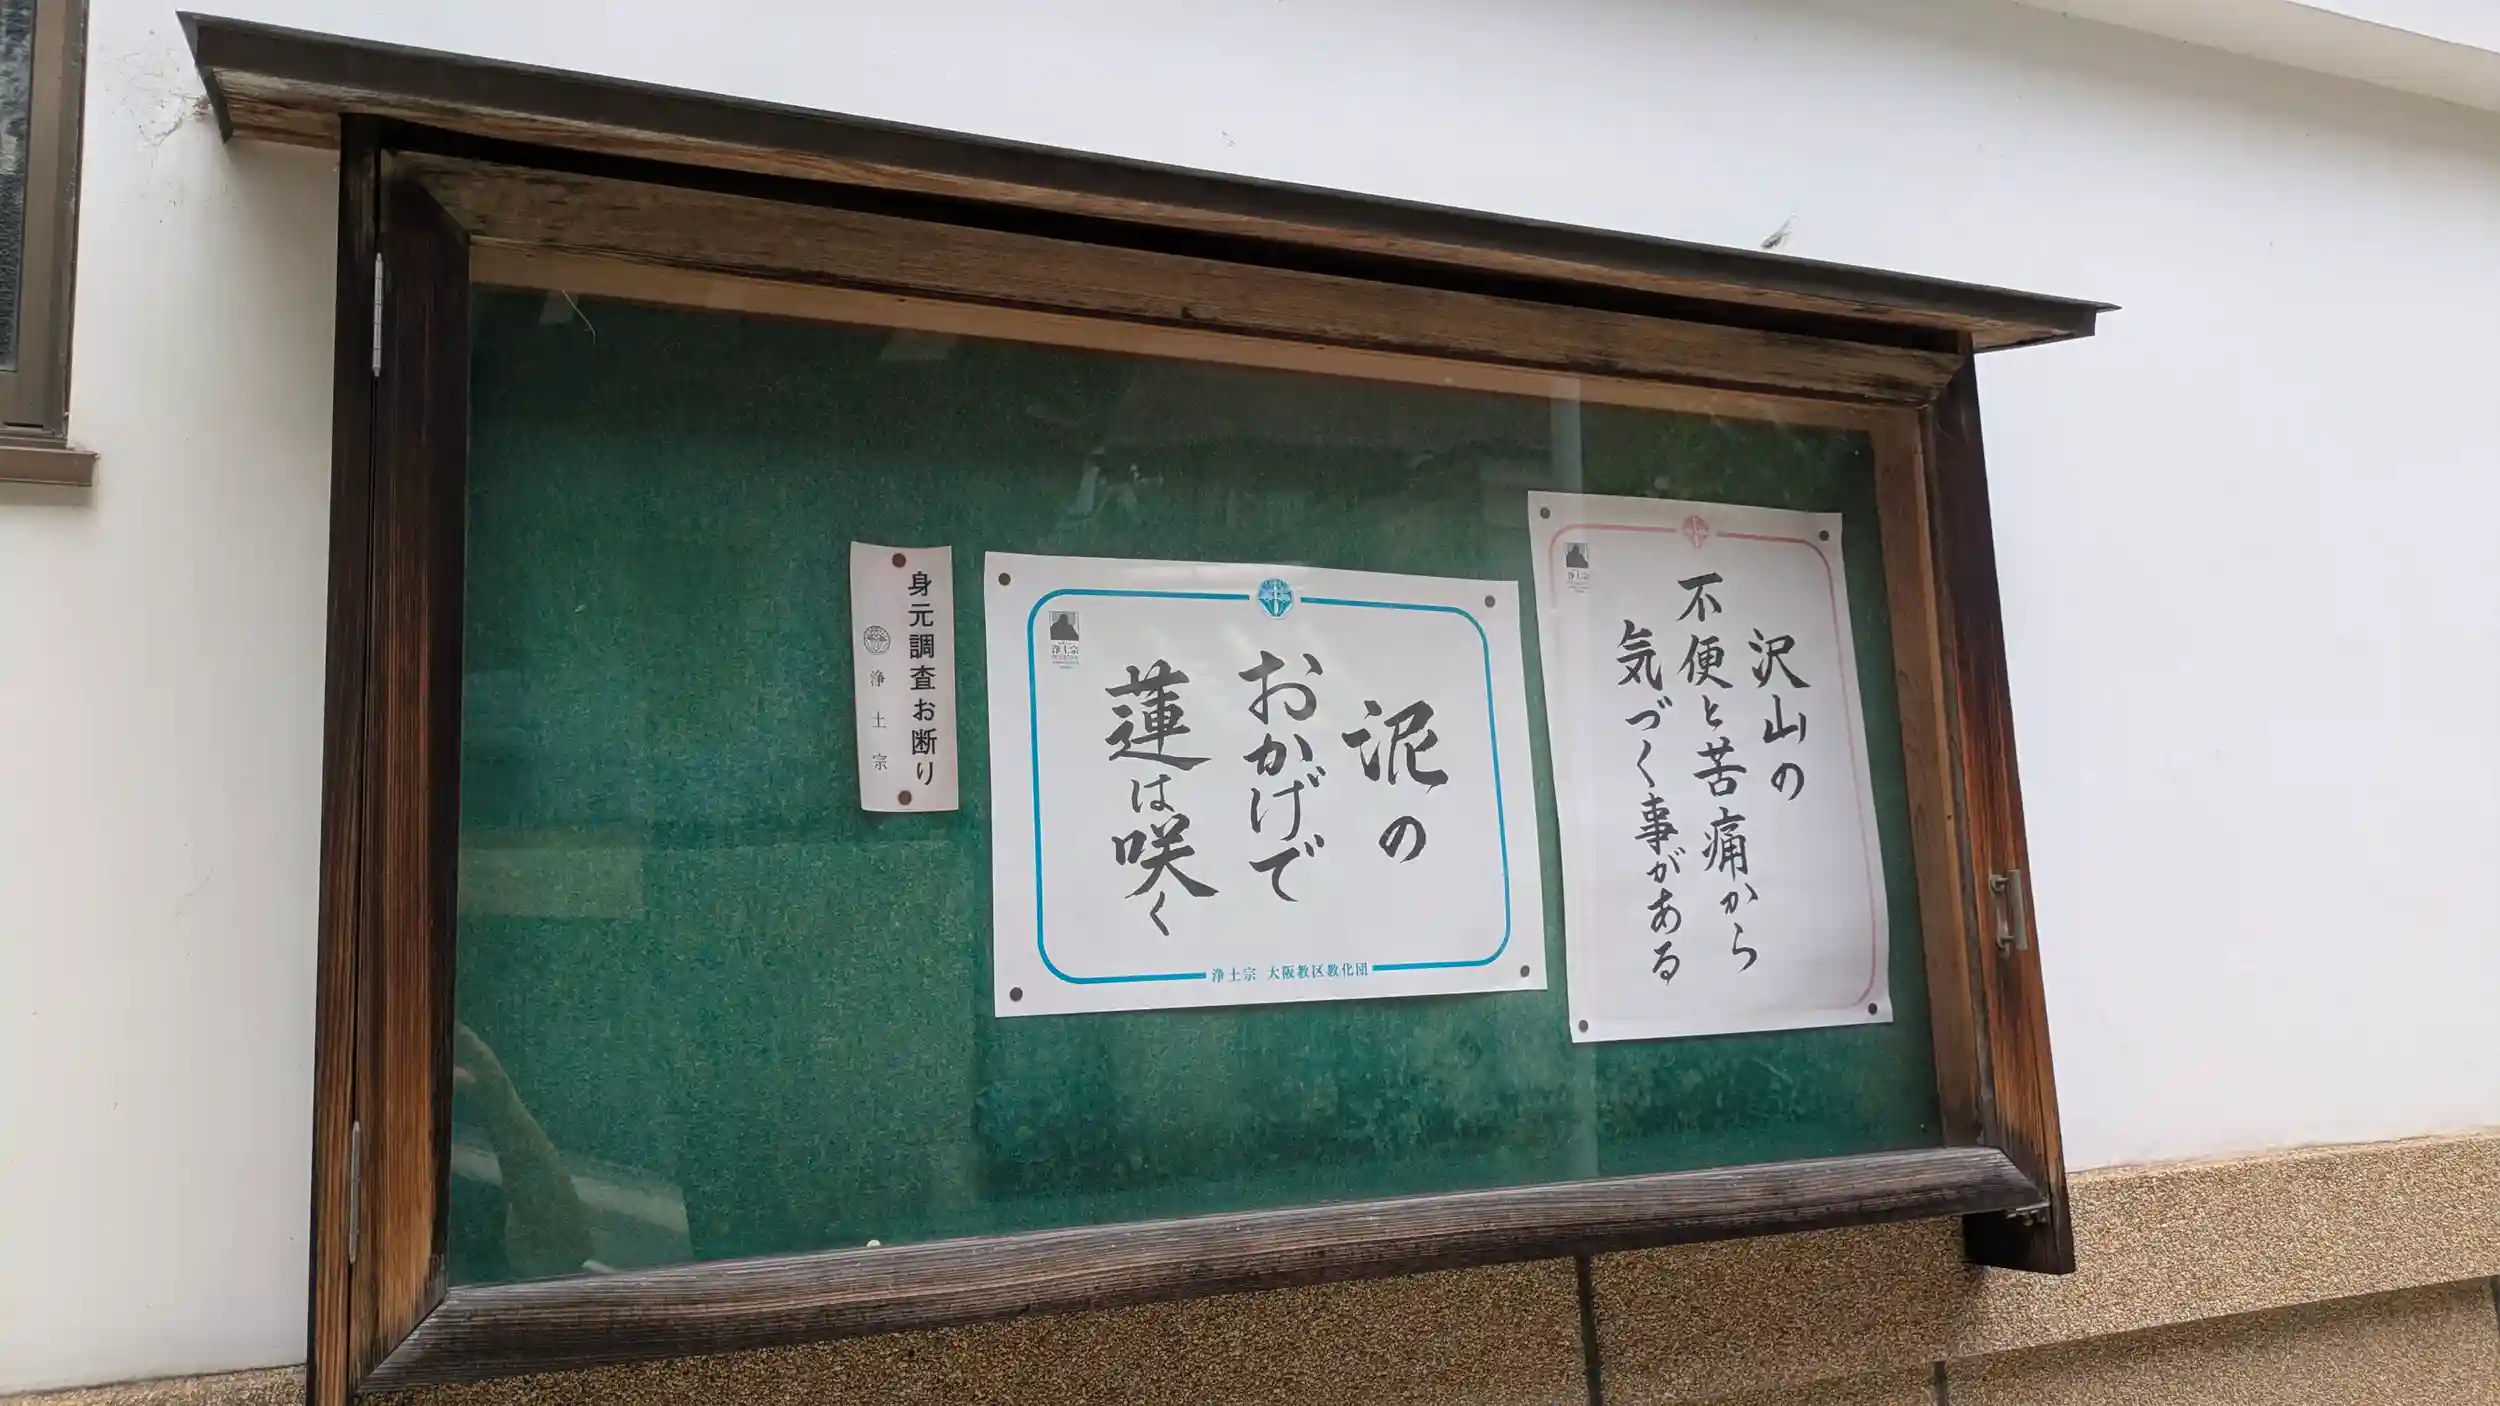 沢山の
不便と苦痛から
気づく事がある
浄土宗
泥の
おかげで
蓮は咲く
浄土宗
浄土宗 大阪教区教化団
身元調査お断り
浄土宗